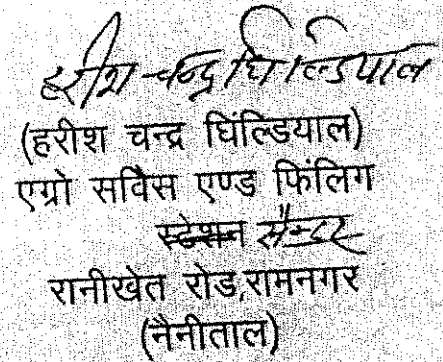 हरीश चन्द्र घिल्डियाल
(हरीश चन्द्र घिंल्डियाल)
एग्रो सर्विस एण्ड फिंलिग
स्टेशन सैन्टर
रानीखेत रोड,रामनगर
(नैनीताल)